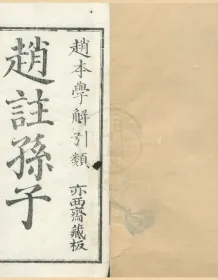 趙本學解引類
趙註孫子
亦西齋藏板